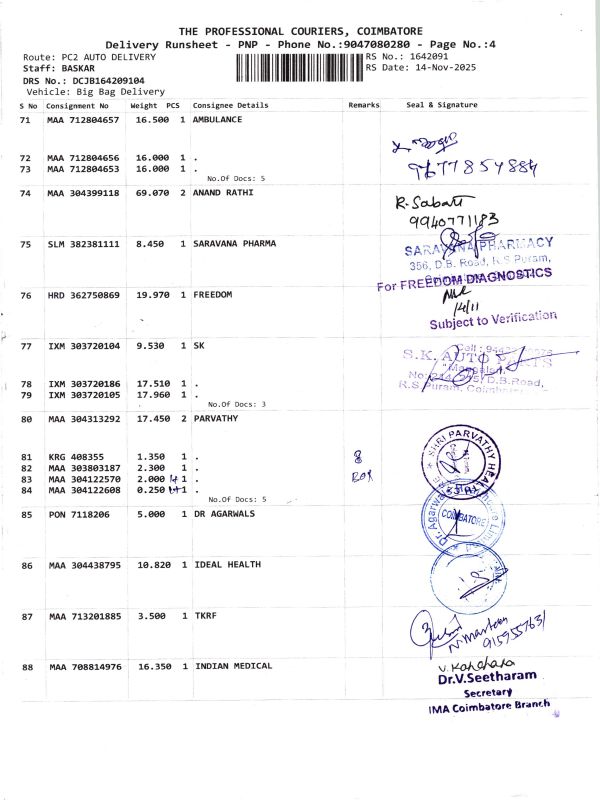 THE PROFESSIONAL COURIERS, COIMBATORE
Delivery Runsheet - PNP - Phone No.:9047080280 - Page No.:4
Route: PC2 AUTO DELIVERY RS No.: 1642091
Staff: BASKAR RS Date: 14-Nov-2025
DRS No.: DCJB164209104
Vehicle: Big Bag Delivery
S No Consignment No Weight PCS Consignee Details Remarks Seal & Signature
71 MAA 712804657 16.500 1 AMBULANCE
72 MAA 712804656 16.000 1 .
73 MAA 712804653 16.000 1 .
9677854884
No.Of Docs: 5
74 MAA 304399118 69.070 2 ANAND RATHI
R. Sabari
9940771183
75 SLM 382381111 8.450 1 SARAVANA PHARMA
SARAVANA PHARMACY
356, D.B. Road, R.S Puram,
For FREEDOM DIAGNOSTICS
76 HRD 362750869 19.970 1 FREEDOM
14/11
Subject to Verification
77 IXM 303720104 9.530 1 SK
S.K. AUTO PARTS
78 IXM 303720186 17.510 1 .
79 IXM 303720105 17.960 1 .
D.B.Road,
R.S.Puram, Coimbatore
No.Of Docs: 3
80 MAA 304313292 17.450 2 PARVATHY
SHRI PARVATHY
81 KRG 408355 1.350 1 .
82 MAA 303803187 2.300 1 .
83 MAA 304122570 2.000 1 .
84 MAA 304122608 0.250 1 .
8
BOX
No.Of Docs: 5
85 PON 7118206 5.000 1 DR AGARWALS
Dr. Agarwal
COIMBATORE
86 MAA 304438795 10.820 1 IDEAL HEALTH
87 MAA 713201885 3.500 1 TKRF
88 MAA 708814976 16.350 1 INDIAN MEDICAL
Dr.V.Seetharam
Secretary
IMA Coimbatore Branch